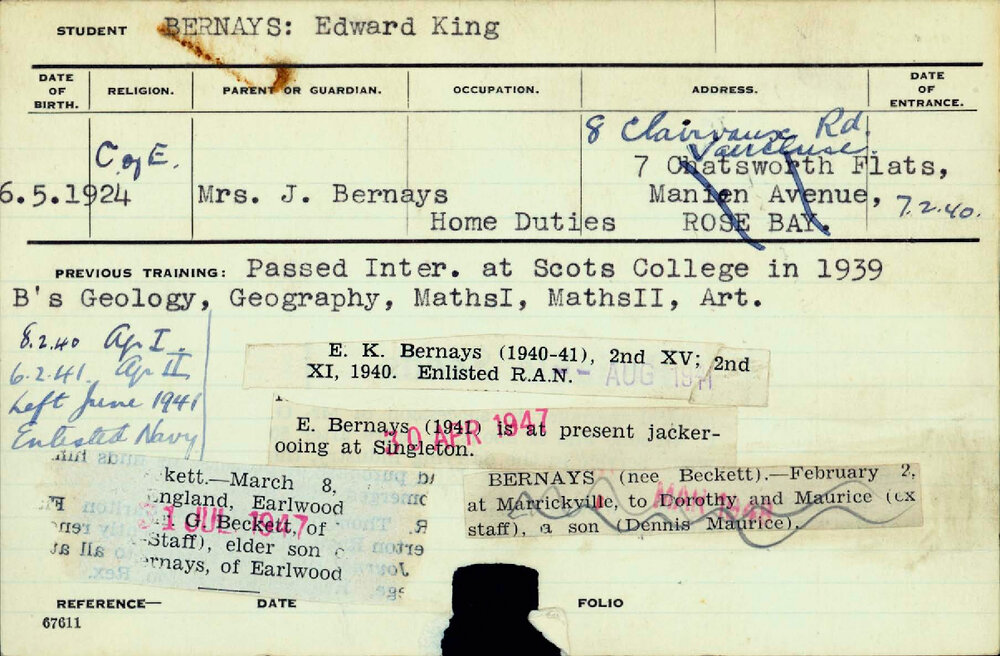 STUDENT BERNAYS: Edward King
DATE OF BIRTH. RELIGION. PARENT OR GUARDIAN. OCCUPATION. ADDRESS. DATE OF ENTRANCE.
8 Clairvaux Rd.
Vaucluse.
C of E. 7 Chatsworth Flats,
6.5.1924 Mrs. J. Bernays Manion Avenue, 7.2.40.
Home Duties ROSE BAY.
PREVIOUS TRAINING: Passed Inter. at Scots College in 1939
B's Geology, Geography, MathsI, MathsII, Art.
8.2.40 Ag I.
6.2.41. Ag II,
Left June 1941
Enlisted Navy
E. K. Bernays (1940-41), 2nd XV; 2nd
XI, 1940. Enlisted R.A.N.
AUG 1941
E. Bernays (1941) is at present jacker-
ooing at Singleton.
30 APR 1947
kett.—March 8,
England, Earlwood
G. Beckett, of
-Staff), elder son
ernays, of Earlwood
1 JUL 1947
BERNAYS (nee Beckett).—February 2,
at Marrickville, to Dorothy and Maurice (ex
staff), a son (Dennis Maurice).
MAR
REFERENCE— DATE FOLIO
67611